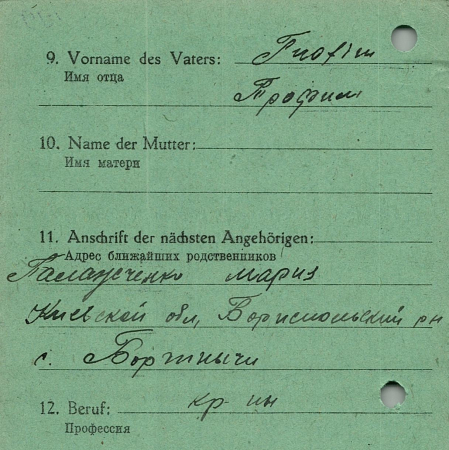 9. Vorname des Vaters: Trofim
Имя отца
Трофим
10. Name der Mutter:
Имя матери
11. Anschrift der nächsten Angehörigen:
Адрес ближайших родственников
Мария
Киевской обл, Бориспольский рн
с. Бортничи
12. Beruf: кр-ин
Профессия